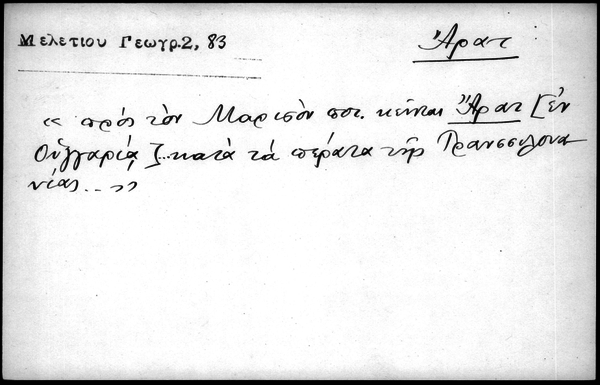 Μελετίου Γεωγρ. 2, 83
Ἄρατ
« πρός τὸν Μαρισὸν ποτ. κεῖται Ἄρατ [ἐν
Οὑγγαρίᾳ]... κατὰ τὰ πέρατα τῆς Τρανσσιλουα
νίας... »